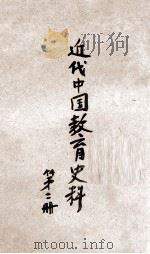 近代中国教育史料
第二册
mtoou.info